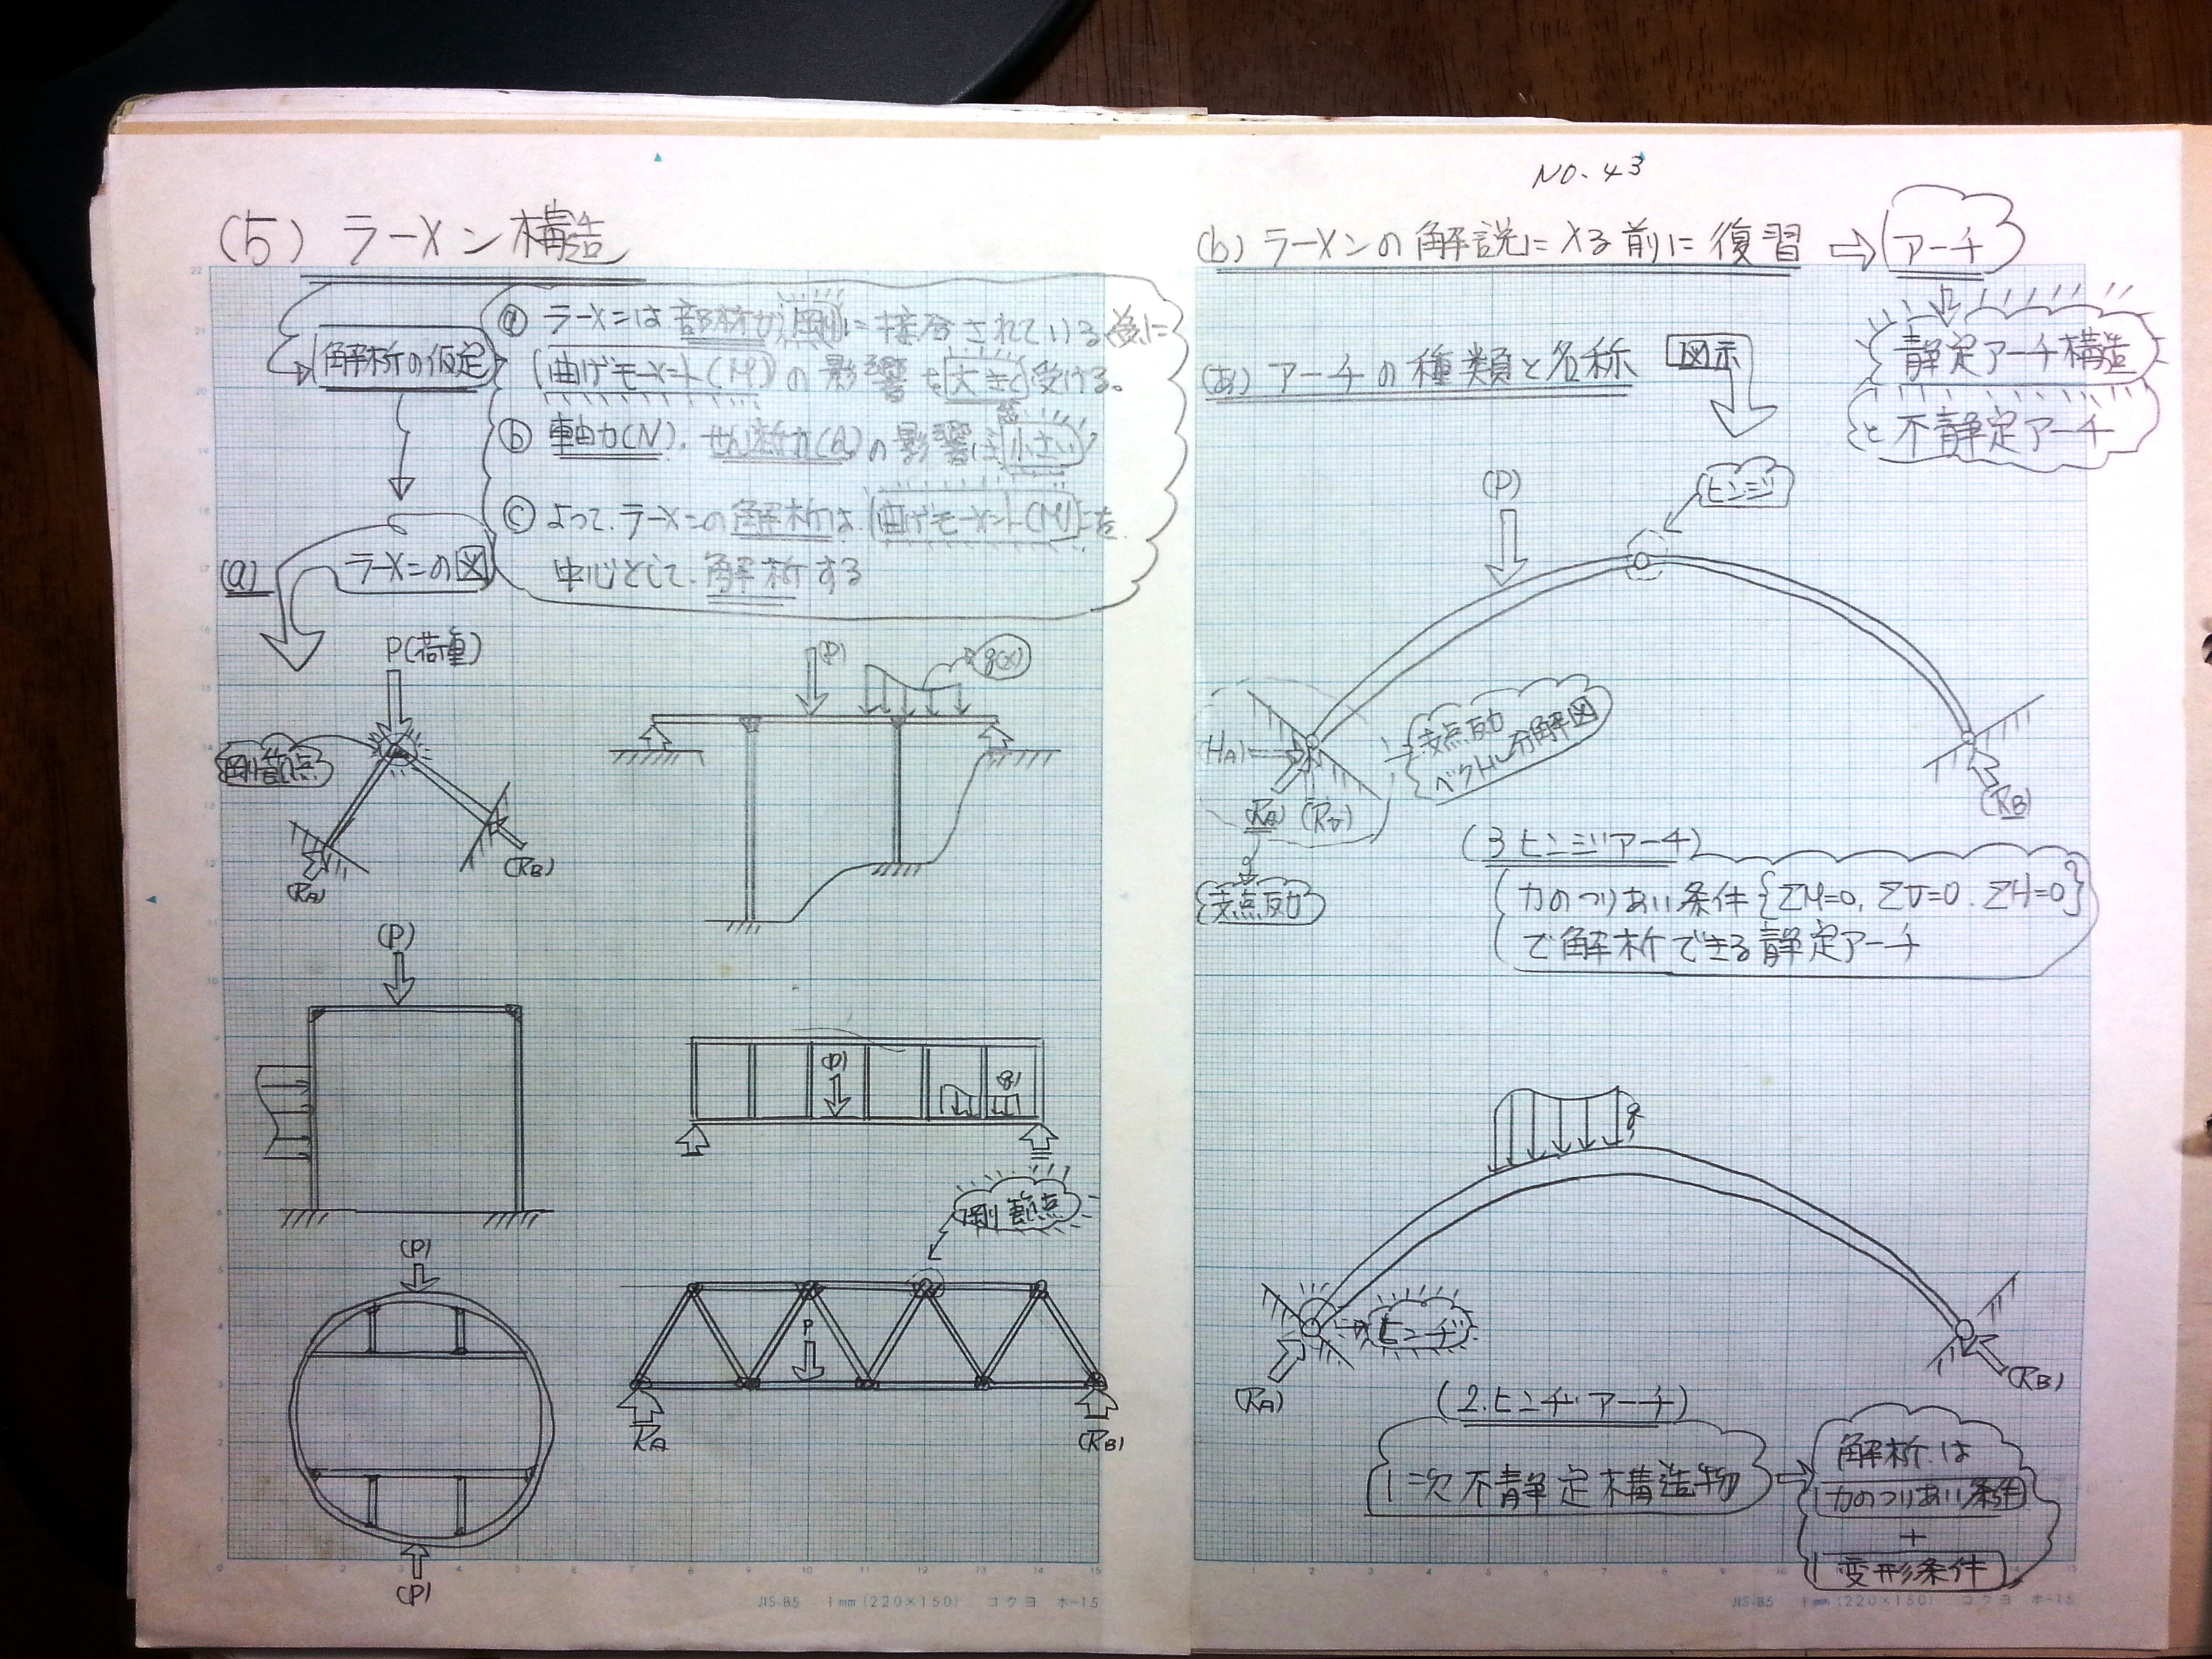 (5) ラーメン構造
解析の仮定
ⓐ ラーメンは部材が剛に接合されている為に
曲げモーメント(M)の影響を大きく受ける。
ⓑ 軸力(N)、せん断力(Q)の影響は小さい
ⓒ よって、ラーメンの解析は、曲げモーメント(M)を
中心として、解析する
(a) ラーメンの図
P(荷重)
剛節点
(RA)
(RB)
(P)
q(x)
(P)
(P)
q
(P)
(P)
剛節点
P
RA
(RB)
JIS-B5 1mm(220×150) コクヨ ホ-15
NO.43
(b) ラーメンの解説に入る前に復習 ⇨ アーチ
静定アーチ構造
と不静定アーチ
(あ) アーチの種類と名称 図示
(P)
ヒンジ
支点反力
ベクトル分解図
HA
(RA) (RV)
(RB)
支点反力
(3ヒンジアーチ)
力のつりあい条件{ΣM=0, ΣV=0, ΣH=0}
で解析できる静定アーチ
q
ヒンヂ
(RA)
(RB)
(2.ヒンヂアーチ)
1次不静定構造物
解析は
力のつりあい条件
+
変形条件
JIS-B5 1mm(220×150) コクヨ ホ-15